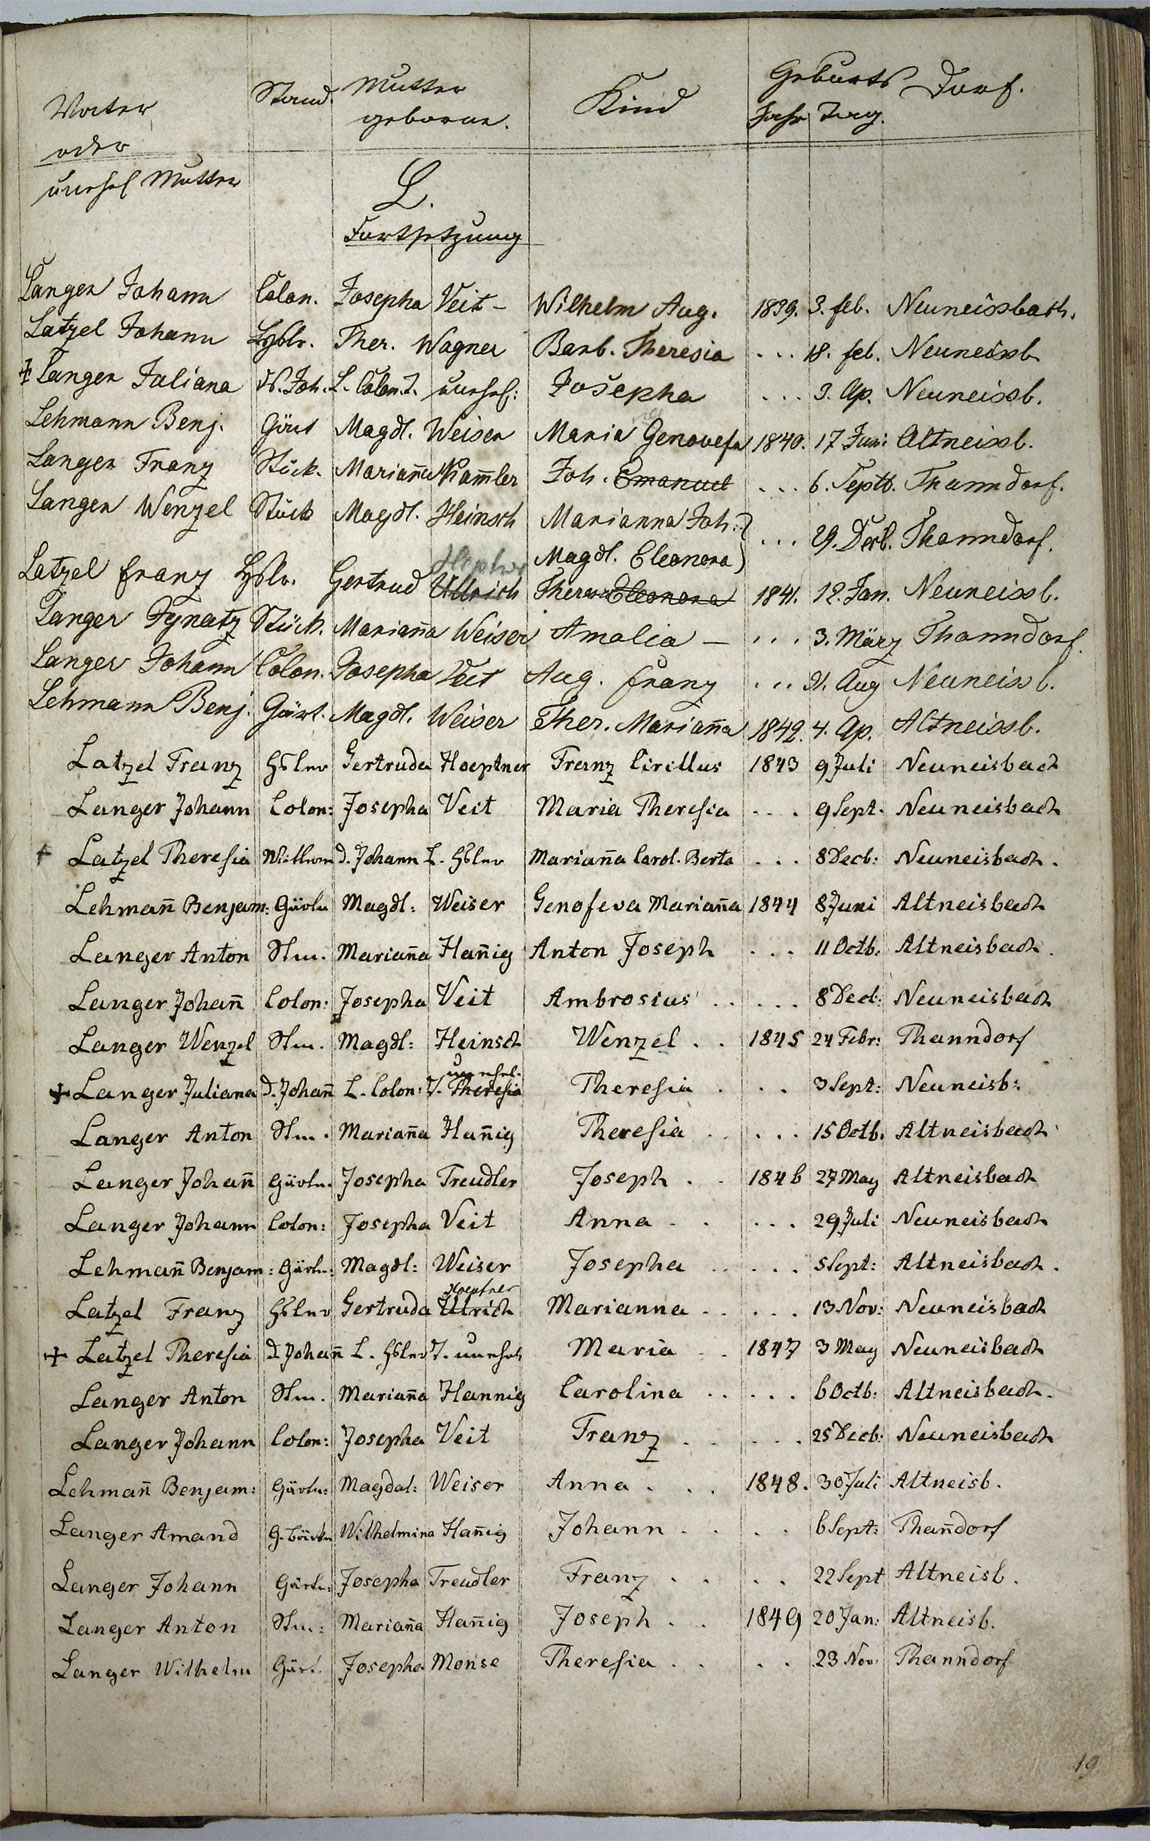 Vater Stand. Mutter Kind Geburts Dorf.
oder geborne. Jahr Tag.
unehel Mutter
L.
Fortsetzung
Langer Johann Colon. Josepha Veit – Wilhelm Aug. 1839. 3. feb. Neuneissbach.
Latzel Johann Hslr. Ther. Wagner Barb. Theresia . . . 18. feb. Neuneissb.
+ Langer Juliana d. Joh. L. Colon. T. unehel: Josepha . . . 3. Ap. Neuneissb.
Lehmann Benj. Gärt Magdl. Weiser Maria Genovefa 1840. 17 Juni Altneissb.
Langer Franz Stück. Mariana Kam̄ler Joh. Emanuel . . . 6. Septb. Thanndorf.
Langer Wenzel Stück Magdl. Heinsch Marianna Joh. } . . . 29. Decb. Thanndorf.
Magdl. Eleonora }
Latzel Franz Hslr. Gertrud Ullrich Theres Eleonora 1841. 12. Jan. Neuneissb.
Langer Ignatz Stück. Mariana Weiser Amalia – . . . 3. März Thanndorf.
Langer Johann Colon. Josepha Veit Aug. Franz . . . 21. Aug Neuneissb.
Lehmann Benj. Gärt. Magdl. Weiser Ther. Marian̄a 1842. 4. Ap. Altneissb.
Latzel Franz Hsler Gertruda Hoeptner Franz Cirillus 1843 9 Juli Neuneisbach
Langer Johann Colon: Josepha Veit Maria Theresia . . . 9 Sept. Neuneisbach
+ Latzel Theresia D. Johann L. Hsler Marian̄a Carol. Berta . . . 8 Decb: Neuneisbach.
Lehman̄ Benjam: Gärtn Magdl: Weiser Genofeva Marian̄a 1844 8 Juni Altneisbach
Langer Anton Stm. Marian̄a Han̄ig Anton Joseph . . . 11 Octb: Altneisbach.
Langer Johan̄ Colon: Josepha Veit Ambrosius . . . . . 8 Decb: Neuneisbach
Langer Wenzel Stm. Magdl: Heinsch Wenzel . . 1845 24 Febr: Thanndorf
unehel.
+ Langer Juliana D. Johan̄ L. Colon: T. Theresia Theresia . . . 3 Sept: Neuneisb:
Langer Anton Stm. Marian̄a Han̄ig Theresia . . . . . 15 Octb. Altneisbach
Langer Johan̄ Gärtn. Josepha Treudler Joseph . . 1846 27 May Altneisbach
Langer Johann Colon: Josepha Veit Anna . . . . . 29 Juli Neuneisbach
Lehman̄ Benjam: Gärtn: Magdl: Weiser Josepha . . . . . 5 Sept: Altneisbach.
Hoeptner
Latzel Franz Hsler Gertruda Ulrich Marianna . . . . . 13 Nov: Neuneisbach
+ Latzel Theresia D. Johan̄ L. Hsler T. unehel Maria . . 1847 3 May Neuneisbach
Langer Anton Stm. Marian̄a Hannig Carolina . . . . . 6 Octb: Altneisbach.
Langer Johann Colon: Josepha Veit Franz . . . . . 25 Decb: Neuneisbach
Lehman̄ Benjam: Gärtn: Magdal: Weiser Anna . . . 1848. 30 Juli Altneisb.
Langer Amand Wilhelmina Han̄ig Johann . . . . 6 Sept: Than̄dorf
Langer Johann Gärtn: Josepha Treudler Franz . . . . 22 Sept Altneisb.
Langer Anton Stm: Marian̄a Han̄ig Joseph . . 1849 20 Jan: Altneisb.
Langer Wilhelm Gärt. Josepha Monse Theresia . . . . 23 Nov: Thanndorf
19